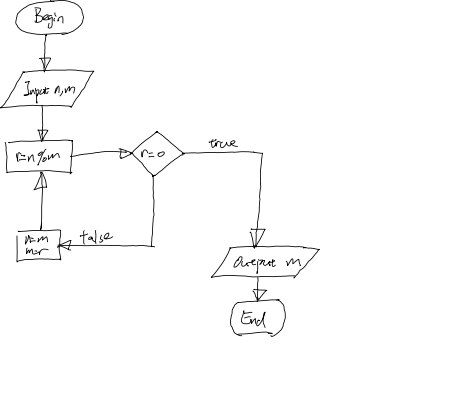 Begin
Input n,m
r=n%m
r=0
true
n=m
m=r
false
output m
End